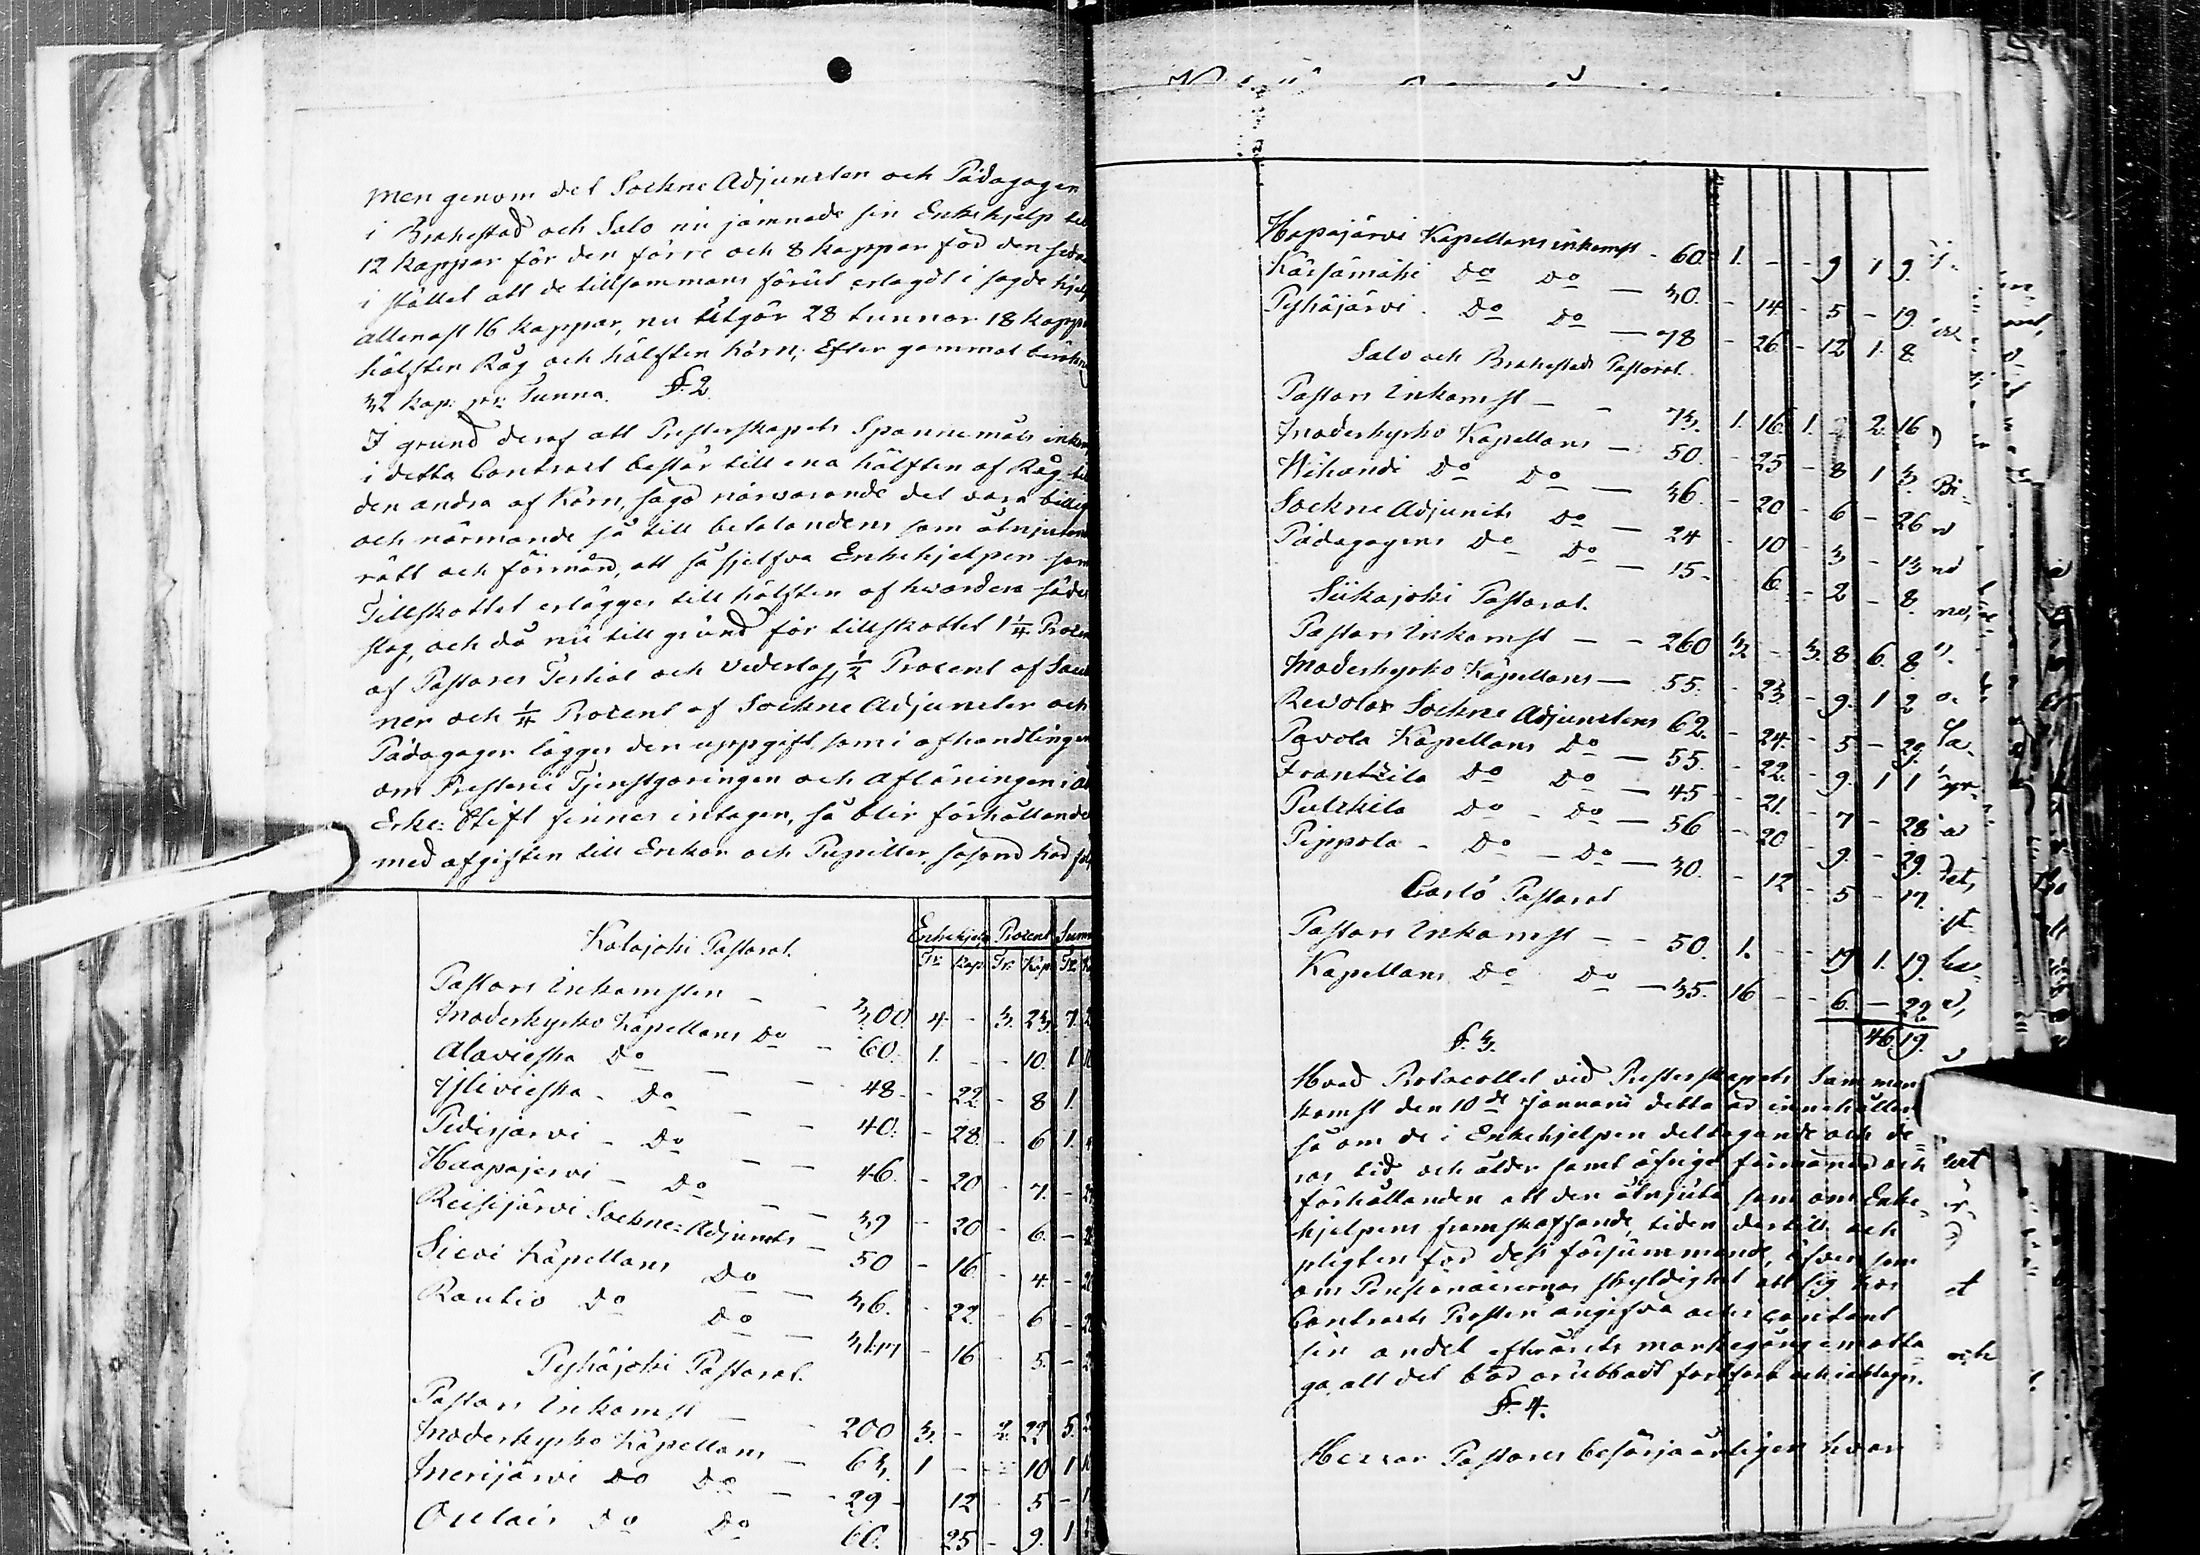 Men genom det Sockne Adjuncten och Pädagogen
i Brahestad och Salo nu jämnade sin Enkehjelp till
12 kappar för den förre och 8 kappar för den sedn
i stället att de tillsammans förut erlagdt i sagde hjelp
allenast 16 kappar, nu utgör 28 tunnor 18 kappr
hälften Råg och hälften korn, Efter gammal beräkn
32 kap: pr: Tunna. §. 2.
I grund deraf att Presterskapets Spannemåls inkom
i detta Contract består till ena hälften af Råg till
den andra af Korn, sågo närvarande det vara billig
och närmande så till betalandens som åtnjutan
rätt och förmån, att så sjelfva Enkehjelpen som
Tillskottet erlägges till hälften af hvardera sädes
slag, och då nu till grund för tillskottet 1 1/4 Procen
af Pastorer Tertial och Vederlag, 1/2 Procent af
ner och 1/4 Procent af Sockne Adjuncter och
Pädagoger lägges den uppgift, som i afhandlingen
om Presterne Tjenstgöringen och Aflöningen i
Erke: Stift finnes intagen, så blir förhållande
med afgiften till Enkor och Pupiller,
Enkehjelp Procent Summ
Kalajoki Pastorat. Tr: Kap. Tr: Kap: Tr: K
Pastors Inkomsten — - 300. 4. - 3. 23. 7. 2
Moderkyrko Kapellans Do - 60. 1. - - 10. 1 10
Alavieska Do — - 48. - 22 - 8 1.
Ylivieska - Do — - 40. - 28. - 6 1.
Pidisjärvi - Do — — 46. - 20 - 7. -
Haapajervi - Do — - 39 - 20 - 6. -
Reisijärvi Sockne: Adjuncts — 50 - 16. - 4. - 20
Sievi Kapellans Do — 36. - 22. - 6 - 28
Rautio Do Do — - 16 - 5. - 2
Pyhäjoki Pastorat.
Pastors Inkomst — - 200 3. - 2. 22 5. 2
Moderkyrko Kapellans — 63. 1 - - 10 1 10
Merijärvi Do Do — - 29 - 12 - 5 - 1
Oulais Do Do 60. 25 - 9. 1
Hapajärvi Kapellans inkomst - 60. 1. - - 9 1 9.
Kärsämäki Do Do — 30. - 14 - 5 - 19.
Pyhäjärvi. Do Do — 78 - 26 - 12 1. 8.
Salo och Brahestads Pastorat.
Pastors Inkomst — - 73. 1. 16. 1. - 2. 16
Moderkyrko Kapellans — 50. - 25 - 8 1 3.
Wihandi Do Do — 36. - 20 - 6 - 26
Sockne Adjuncts Do — 24 - 10 - 3 - 13
Pädagogens Do Do — 15. - 6. - 2 - 8.
Siikajoki Pastorat.
Pastors Inkomst — - 260 3 - 3. 8 6. 8
Moderkyrko Kapellans — 55. - 23. - 9. 1 2
Revolax Sockne Adjunctens 62. - 24. - 5 - 29.
Pavola Kapellans Do — 55. - 22. - 9. 1 1
Frantzila Do Do — 45 - 21. - 7 - 28
Pulkkila Do - Do — 56 - 20 - 9. - 29.
Pippola - Do — Do — 30. - 12 - 5 - 17.
Carlö Pastorat
Pastors Inkomst — - 50. 1. - - 19 1. 19.
Kapellans Do Do — 35. 16 - - 6. - 22
46. 19.
§. 3.
Hvad Protocollet vid Presterskapets Samman
komst den 10de Januarii detta år innehåller
så om de i Enkehjelpen deltagande och de-
ras tid och ålder samt öfrige förmåner och
förhållanden att den åtnjuta, som om Enke-
hjelpens framskaffande, tiden dertill och
pligten för dess försummande, äfven som
om Pensionairernas skyldighet att sig hos
Contracts Prosten angifva och contant
sin andel efter årets markegång emotta-
ga, allt det bör orubbadt fortfara och iakttages.
§. 4.
Herrar Pastorer besörja årligen hvar